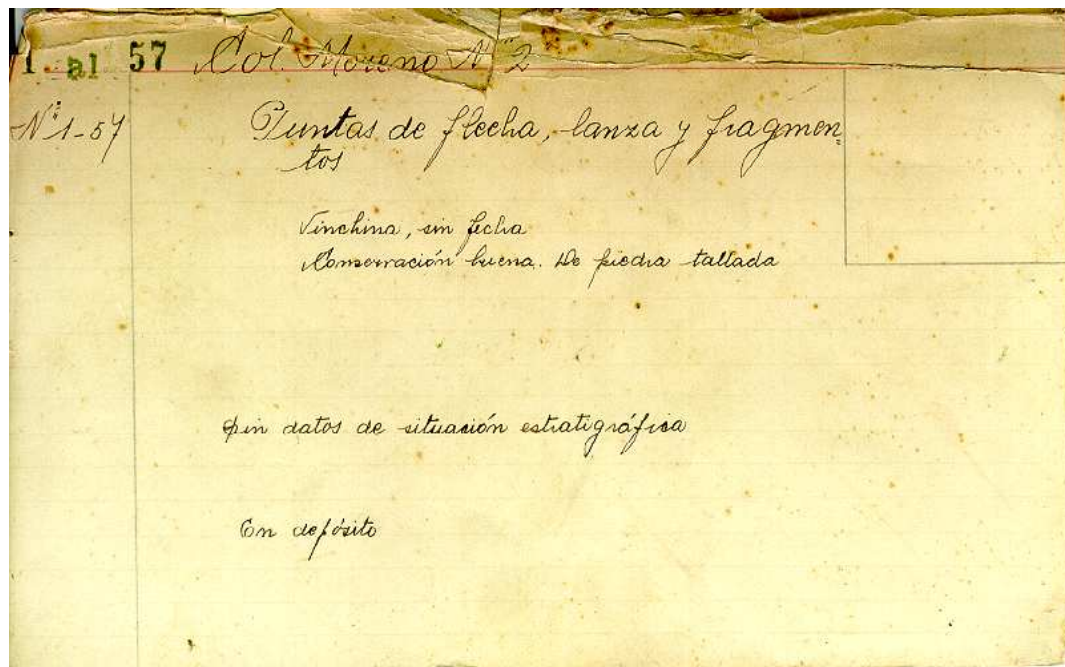 1 al 57 Col. Moreno Nº 2
Nº 1-57
Puntas de flecha, lanza y fragmen=
tos
Vinchina, sin fecha
Conservación buena. De piedra tallada
Sin datos de situación estratigráfica
En depósito